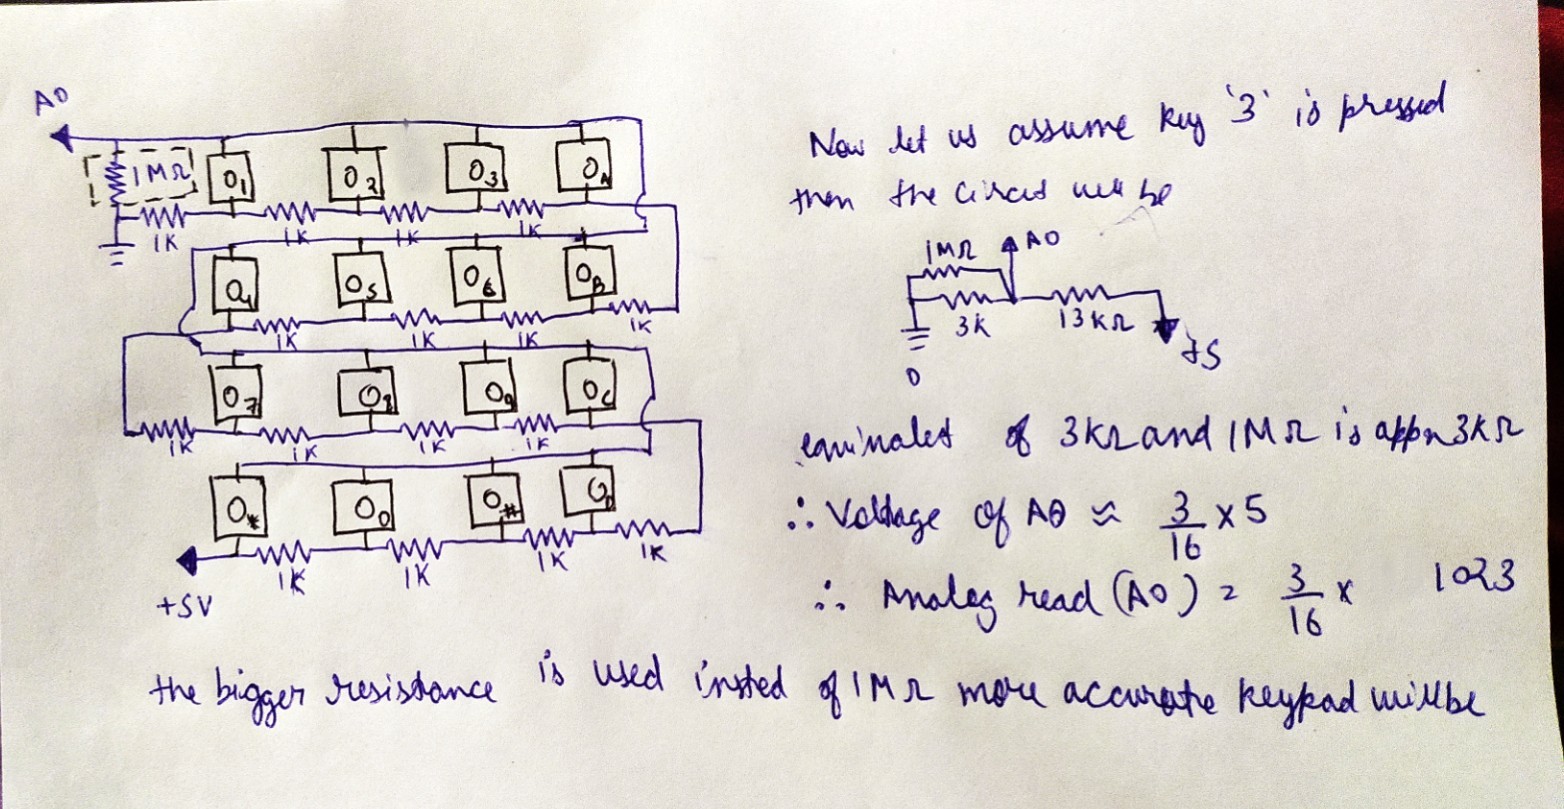 A0
1MΩ
O1 O2 O3 OA
1K 1K 1K 1K
O4 O5 O6 OB
1K 1K 1K 1K
O7 O8 O9 OC
1K 1K 1K 1K
O* O0 O# OD
1K 1K 1K 1K
+5V
Now let us assume key '3' is pressed
then the circuit will be
1MΩ A0
3K 13KΩ
+5
0
equivalet of 3KΩ and 1MΩ is appx 3KΩ
∴ Voltage of A0 ≈ 3/16 x 5
∴ Analog read (A0) = 3/16 x 1023
the bigger resistance is used insted of 1MΩ more accurate keypad will be